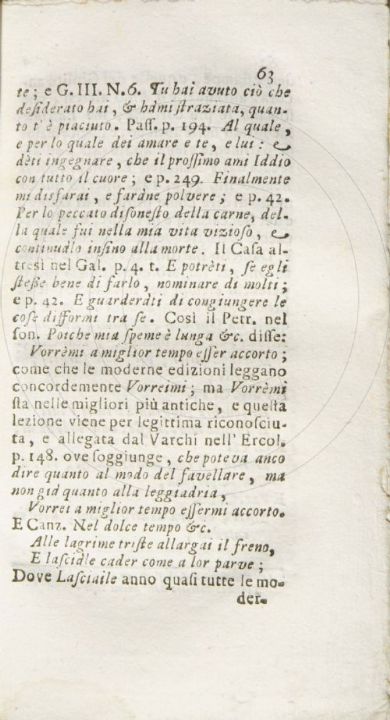 63
te; e G. III. N.6. Tu hai avuto ciò che
desiderato hai, & hámi straziata, quan-
to t'è piaciuto. Pass. p. 194. Al quale,
e per lo quale dei amare e te, e lui: e
dèti ingegnare, che il prossimo ami Iddio
con tutto il cuore; e p. 249. Finalmente
mi disfarai, e faráne polvere; e p. 42.
Per lo peccato disonesto della carne, del-
la quale fui nella mia vita vizioso, e
continuálo insino alla morte. Il Casa al-
tresì nel Gal. p. 4. t. E potrèti, se egli
stesse bene di farlo, nominare di molti;
e p. 42. E guarderáti di congiungere le
cose difformi tra se. Così il Petr. nel
son. Poichè mia speme è lunga &c. disse:
Vorrèmi a miglior tempo esser accorto;
come che le moderne edizioni leggano
concordemente Vorreimi; ma Vorrèmi
sta nelle migliori più antiche, e questa
lezione viene per legittima riconosciu-
ta, e allegata dal Varchi nell' Ercol.
p. 148. ove soggiunge, che poteva anco
dire quanto al modo del favellare, ma
non giá quanto alla leggiadria,
Vorrei a miglior tempo essermi accorto.
E Canz. Nel dolce tempo &c.
Alle lagrime triste allargai il freno,
E lasciále cader come a lor parve;
Dove Lasciaile anno quasi tutte le mo-
der-